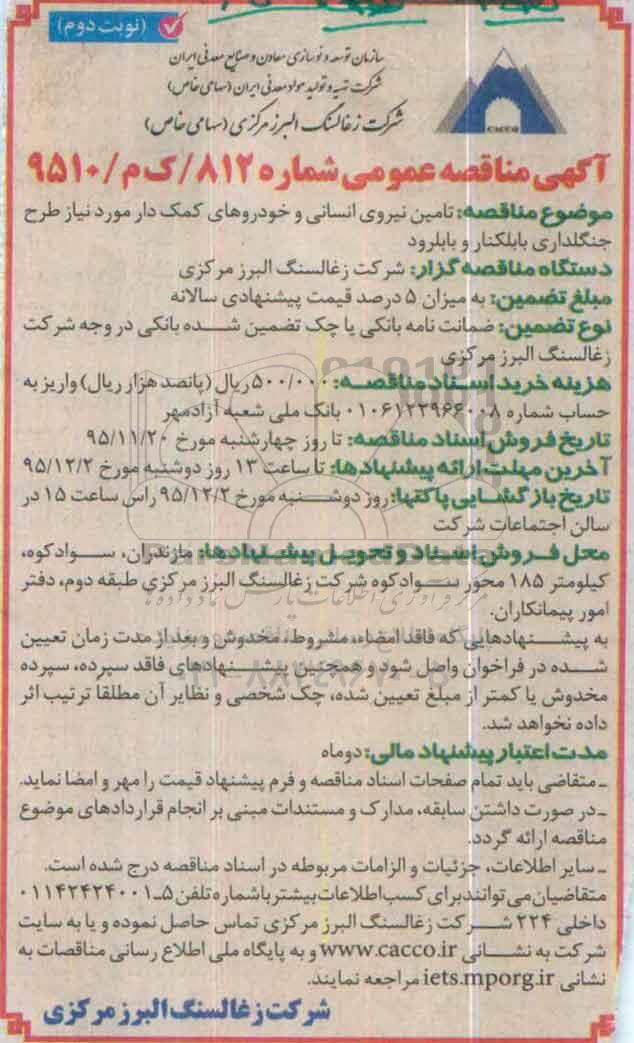 (نوبت دوم)
سازمان توسعه و نوسازی معادن و صنایع معدنی ایران
شرکت تهیه و تولید مواد معدنی ایران (سهامی خاص)
شرکت زغالسنگ البرز مرکزی (سهامی خاص)
CACCO
آگهی مناقصه عمومی شماره ۸۱۲/ک م/۹۵۱۰
موضوع مناقصه: تامین نیروی انسانی و خودروهای کمک دار مورد نیاز طرح
جنگلداری بابلکنار و بابلرود
دستگاه مناقصه گزار: شرکت زغالسنگ البرز مرکزی
مبلغ تضمین: به میزان ۵ درصد قیمت پیشنهادی سالانه
نوع تضمین: ضمانت نامه بانکی یا چک تضمین شده بانکی در وجه شرکت
زغالسنگ البرز مرکزی
هزینه خرید اسناد مناقصه: ۵۰۰/۰۰۰ ریال (پانصد هزار ریال) واریز به
حساب شماره ۰۱۰۶۱۲۲۹۶۶۰۰۸ بانک ملی شعبه آزادمهر
تاریخ فروش اسناد مناقصه: تا روز چهارشنبه مورخ ۹۵/۱۱/۲۰
آخرین مهلت ارائه پیشنهادها: تا ساعت ۱۳ روز دوشنبه مورخ ۹۵/۱۲/۲
تاریخ بازگشایی پاکتها: روز دوشنبه مورخ ۹۵/۱۲/۲ راس ساعت ۱۵ در
سالن اجتماعات شرکت
محل فروش اسناد و تحویل پیشنهادها: مازندران، سوادکوه،
کیلومتر ۱۸۵ محور سوادکوه شرکت زغالسنگ البرز مرکزی طبقه دوم، دفتر
امور پیمانکاران.
به پیشنهادهایی که فاقد امضاء، مشروط، مخدوش و بعد از مدت زمان تعیین
شده در فراخوان واصل شود و همچنین پیشنهادهای فاقد سپرده، سپرده
مخدوش یا کمتر از مبلغ تعیین شده، چک شخصی و نظایر آن مطلقاً ترتیب اثر
داده نخواهد شد.
مدت اعتبار پیشنهاد مالی: دوماه
ـ متقاضی باید تمام صفحات اسناد مناقصه و فرم پیشنهاد قیمت را مهر و امضا نماید.
ـ در صورت داشتن سابقه، مدارک و مستندات مبنی بر انجام قراردادهای موضوع
مناقصه ارائه گردد.
ـ سایر اطلاعات، جزئیات و الزامات مربوطه در اسناد مناقصه درج شده است.
متقاضیان می توانند برای کسب اطلاعات بیشتر با شماره تلفن ۵ـ۰۱۱۴۲۴۲۴۰۰۱
داخلی ۲۲۴ شرکت زغالسنگ البرز مرکزی تماس حاصل نموده و یا به سایت
شرکت به نشانی www.cacco.ir و به پایگاه ملی اطلاع رسانی مناقصات به
نشانی iets.mporg.ir مراجعه نمایند.
شرکت زغالسنگ البرز مرکزی